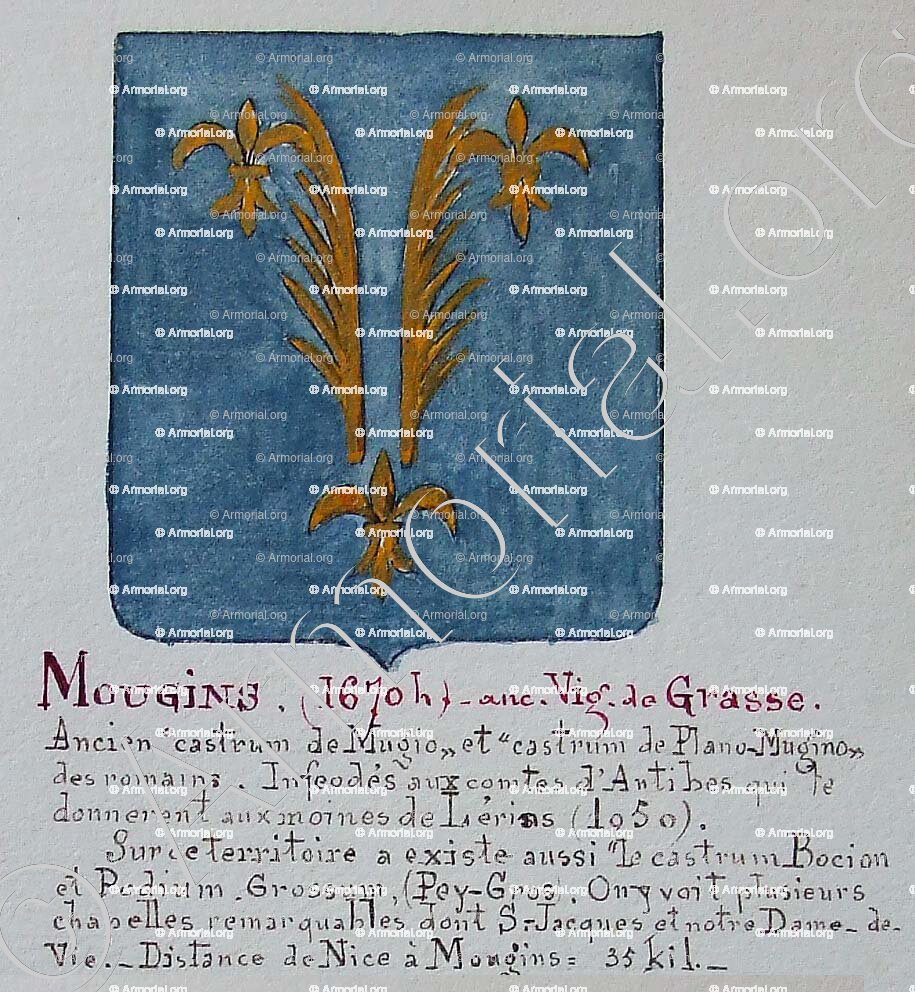 MOUGINS. (1670 h) - anc. Vig. de Grasse.
Ancien castrum de Mugio» et “castrum de Plano-Mugino»
des romains. Infeodés aux comtes d'Antibes qui le
donnerent aux moines de Lérins (1050).
Sur ce territoire a existe aussi “le castrum Bocion
et Podium Grossum, (Pey-Gros). On y voit plusieurs
chapelles remarquables dont St-Jacques et notre Dame-de-
Vie._Distance de Nice à Mougins= 35 kil._
© Armorial.org